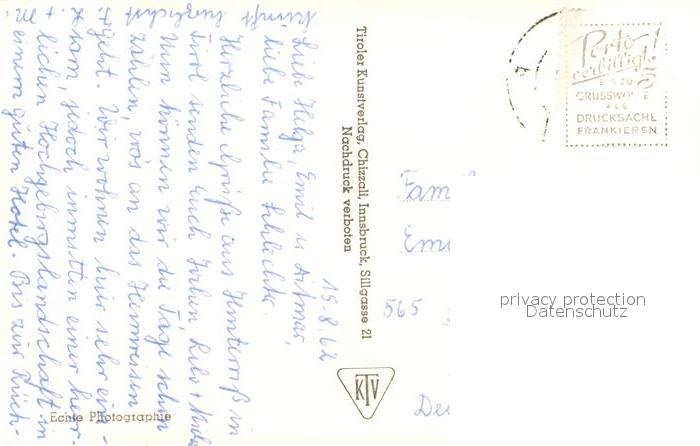 15.8.62
Liebe Helga, Emil u. Aitmar,
liebe Familie Schlechter.
Herzliche Grüße aus Hinterriß in
Tirol senden Euch Jochen Lilo +
Nun können wir die Tage schon
zählen, wos an das Heimreisen
geht. Wir wohnen hier sehr ein-
sam, jedoch inmitten einer herr-
lichen Hochgebirgslandschaft in
einem guten Hotel. Bis zur Rück-
kunft herzlichst
Echte Photographie
Tiroler Kunstverlag, Chizzali, Innsbruck, Sillgasse 21
Nachdruck verboten
KTV
Porto
verbilligt!
GRUSSWORTE
ALS
DRUCKSACHE
FRANKIEREN
Fam
Em
565
De
privacy protection
Datenschutz